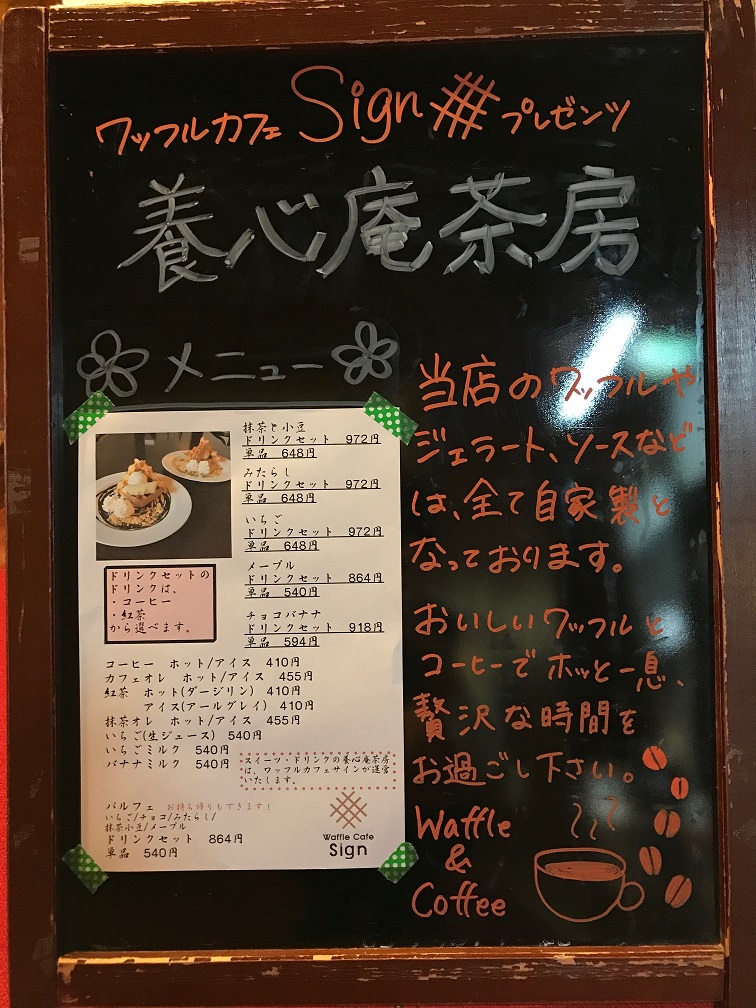 ワッフルカフェ Sign プレゼンツ
養心庵茶房
メニュー
抹茶と小豆
ドリンクセット 972円
単品 648円
みたらし
ドリンクセット 972円
単品 648円
いちご
ドリンクセット 972円
単品 648円
メープル
ドリンクセット 864円
単品 540円
チョコバナナ
ドリンクセット 918円
単品 594円
ドリンクセットの
ドリンクは、
・コーヒー
・紅茶
から選べます。
コーヒー ホット/アイス 410円
カフェオレ ホット/アイス 455円
紅茶 ホット(ダージリン) 410円
アイス(アールグレイ) 410円
抹茶オレ ホット/アイス 455円
いちご(生ジュース) 540円
いちごミルク 540円
バナナミルク 540円
スイーツ・ドリンクの養心庵茶房
は、ワッフルカフェサインが運営
いたします。
パルフェ お持ち帰りもできます!
いちご/チョコ/みたらし/
抹茶小豆/メープル
ドリンクセット 864円
単品 540円
Waffle Cafe
Sign
当店のワッフルや
ジェラート、ソースなど
は、全て自家製と
なっております。
おいしいワッフルと
コーヒーでホッと一息、
贅沢な時間を
お過ごし下さい。
Waffle
&
Coffee